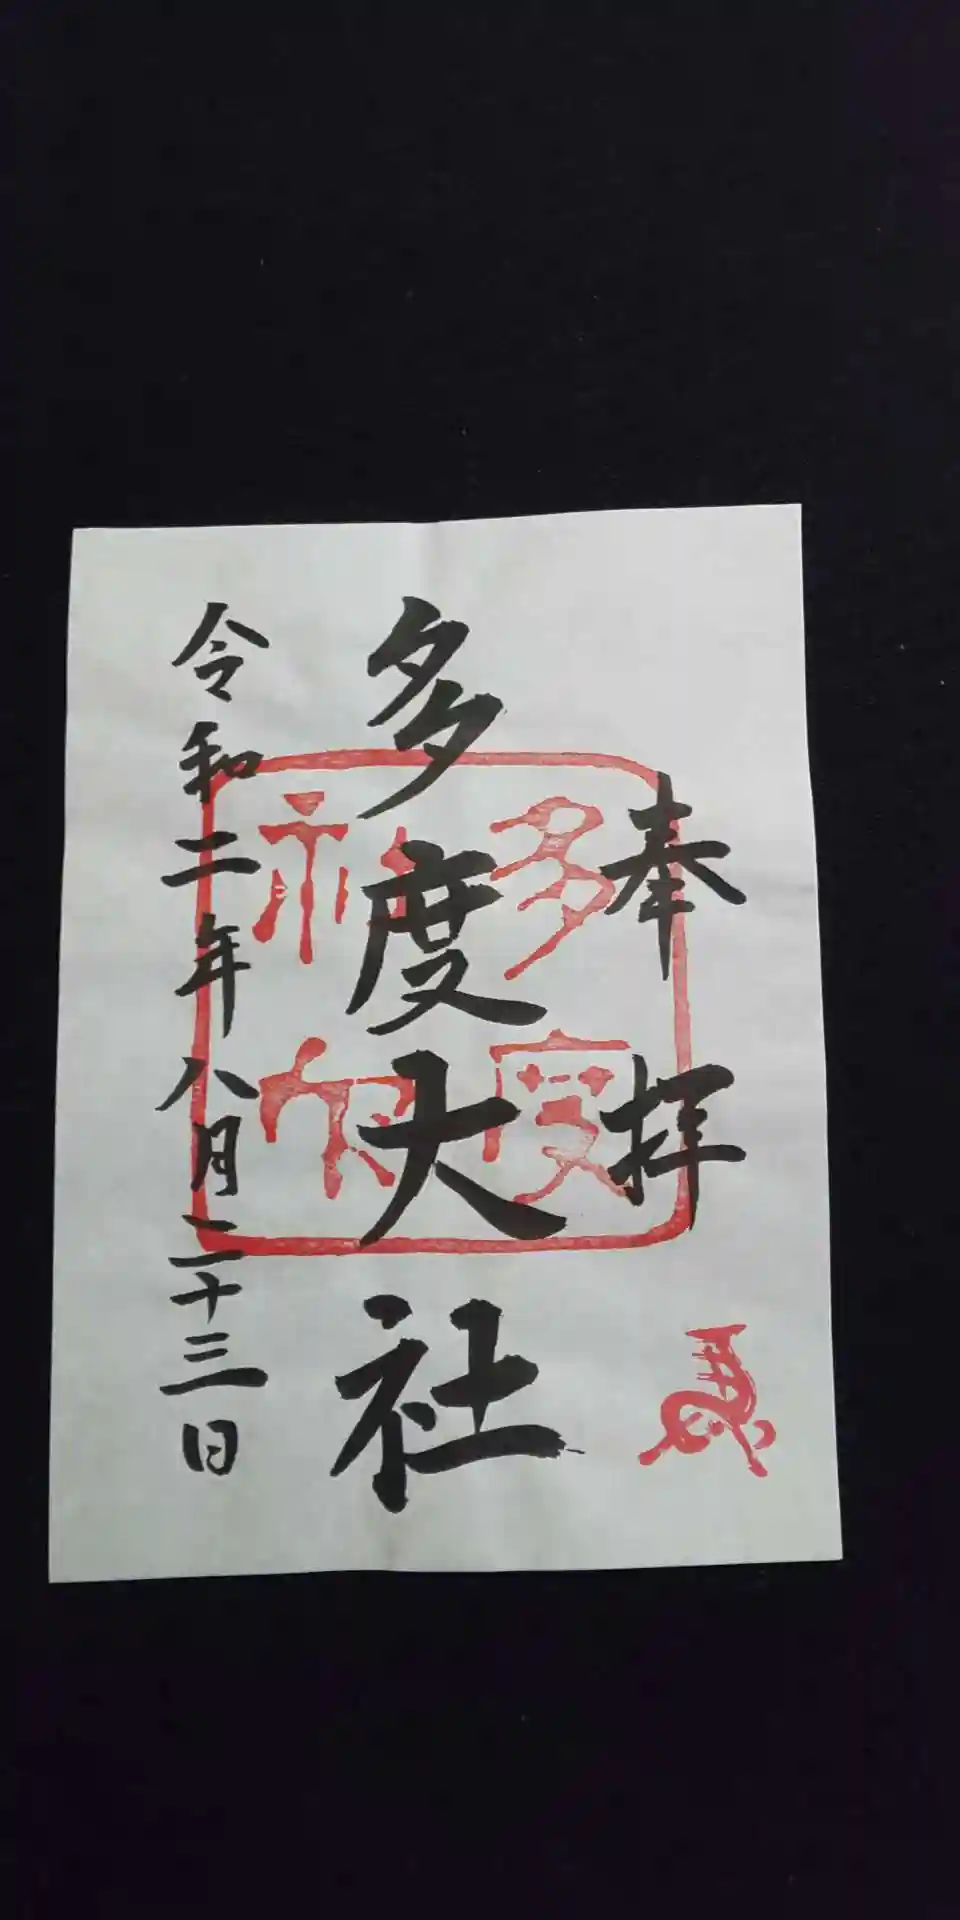 奉拝
多度大社
令和二年八月二十三日
多度
神印